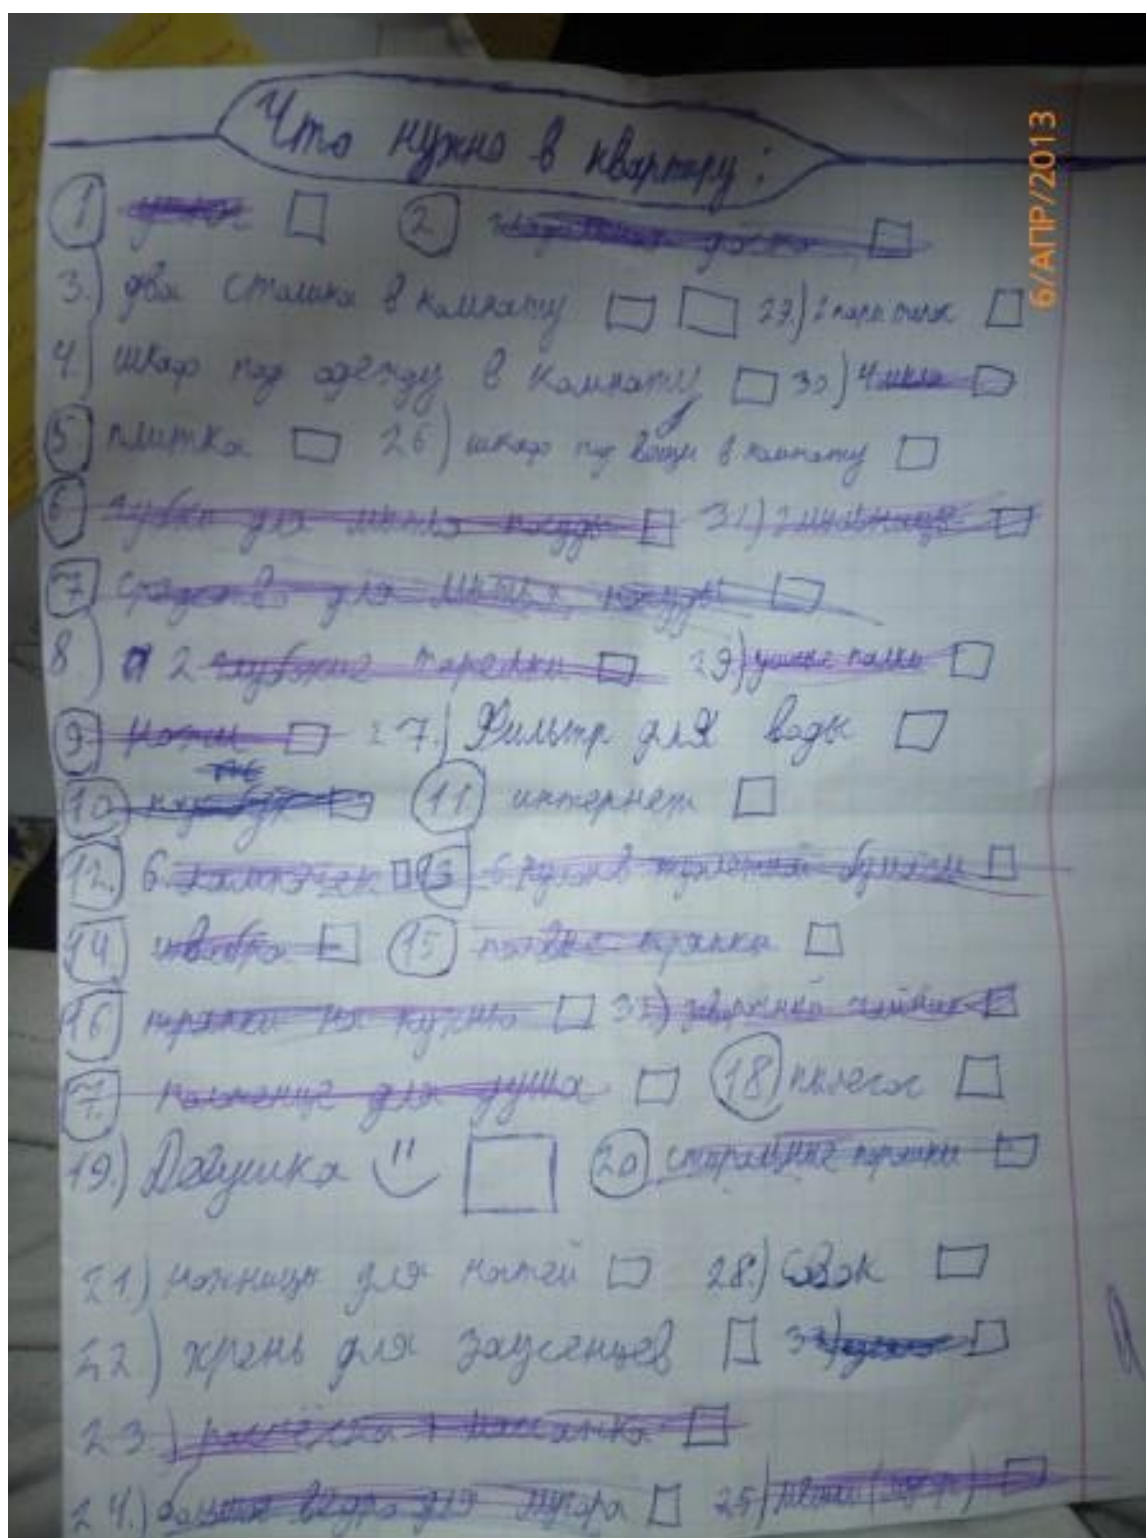 Что нужно в квартиру:
1 2 гладильная доска
3.) два столика в комнату 29.) 2 пары тапок
4.) шкаф под одежду в комнату 30.) 4 мыла
5 плитка 26) шкаф под вещи в комнату
6 губки для мытья посуды 31) 2 мыльницы
7 средство для мытья посуды
8.) 2 глубокие тарелки 29) ушные палки
9 ножи 27.) Фильтр для воды
10 11 интернет
12. 6 лампочек 13 6 рулонов туалетной бумаги
14. швабра 15 половые тряпки
16 тряпки на кухню 32) заварной чайник
17. полотенце для душа 18 пылесос
19.) Девушка 20 стиральные порошки
21) ножницы для ногтей 28.) Совок
22) хрень для заусенцев
23.) расчёска + массажка
24.) ведро для мусора 25)
6/АПР/2013